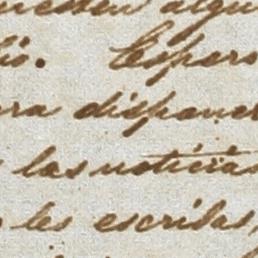 nuesten algu
lio. Espero
ara disponer
las noticias
les escribas,